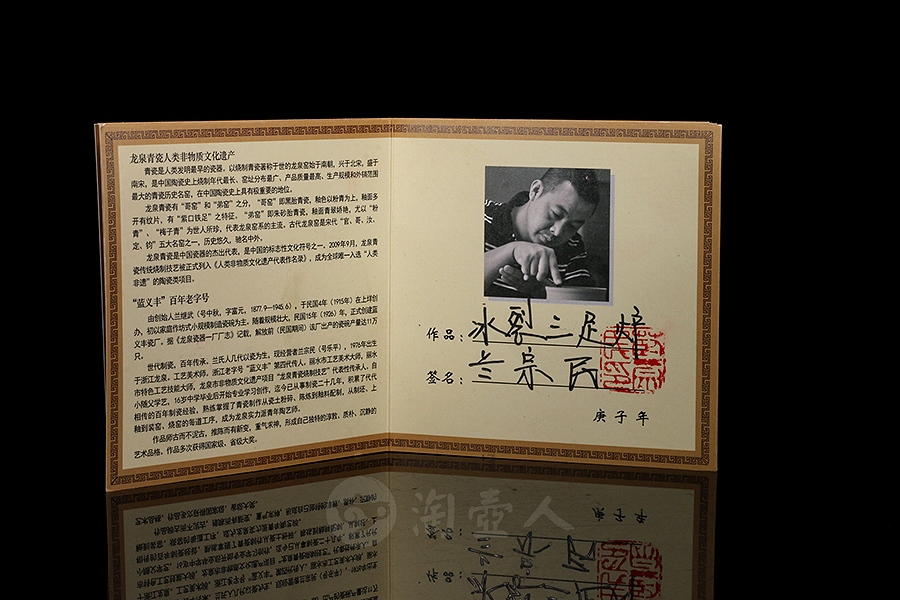 龙泉青瓷人类非物质文化遗产
青瓷是人类发明最早的瓷器，以烧制青瓷著称于世的龙泉窑始于南朝，兴于北宋，盛于
南宋，是中国陶瓷史上烧制年代最长、窑址分布最广、产品质量最高、生产规模和外销范围
最大的青瓷历史名窑，在中国陶瓷史上具有极重要的地位。
龙泉青瓷有“哥窑”和“弟窑”之分，“哥窑”即黑胎青瓷，釉色以粉青为上，釉面多
开有纹片，有“紫口铁足”之特征，“弟窑”即朱砂胎青瓷，釉面青翠娇艳，尤以“粉
青”、“梅子青”为世人所珍，代表龙泉窑系的主流，古代龙泉窑是宋代“官、哥、汝、
定、钧”五大名窑之一，历史悠久，驰名中外。
龙泉青瓷是中国瓷器的杰出代表，是中国的标志性文化符号之一，2009年9月，龙泉青
瓷传统烧制技艺被正式列入《人类非物质文化遗产代表作名录》，成为全球唯一入选“人类
非遗”的陶瓷类项目。
“蓝义丰”百年老字号
由创始人兰继武（号中秋，字富元，1877.9—1945.6），于民国4年（1915年）在上垟创
办，初以家庭作坊式小规模制造瓷碗为主。随着规模壮大，民国15年（1926）年，正式创建蓝
义丰瓷厂。据《龙泉瓷器一厂厂志》记载，解放前（民国期间）该厂出产的瓷碗产量达11万
只。
世代制瓷，百年传承。兰氏人几代以瓷为生，现经营者兰宗民（号乐平），1976年出生
于浙江龙泉，工艺美术师，浙江老字号“蓝义丰”第四代传人，丽水市工艺美术大师，丽水
市特色工艺技能大师，龙泉市非物质文化遗产项目“龙泉青瓷烧制技艺”代表性传承人，自
小随父学艺，16岁中学毕业后开始专业学习创作，迄今已从事制瓷二十几年，积累了代代
相传的百年制瓷经验，熟练掌握了青瓷制作从瓷土粉碎、陈炼到釉料配制，从制坯、上
釉到装窑、烧窑的每道工序，成为龙泉实力派青年陶艺师。
作品师古而不泥古，推陈而有新变，重气求神，形成自己独特的淳散、质朴、沉静的
艺术品格，作品多次获得国家级、省级大奖。
作品：冰裂三足炉
签名：兰宗民
庚子年
淘壶人